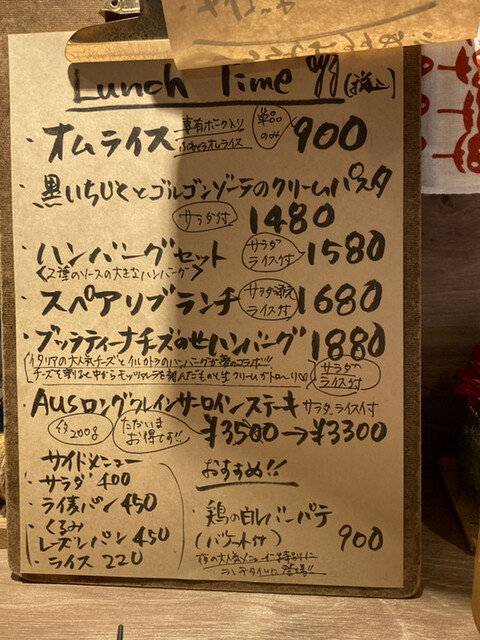 Lunch Time (税込)
・オムライス 専有ポーク入り ふわとろオムライス 単品のみ 900
・黒いちじくとゴルゴンゾーラのクリームパスタ
サラダ付 1480
・ハンバーグセット サラダ ライス付 1580
<2種のソースの大きなハンバーグ>
・スペアリブランチ サラダ添え ライス付 1680
・ブッラティーナチーズのせハンバーグ 1880
イタリアの大人気チーズと のハンバーグが夢のコラボ!!
チーズを割ると中からモッツァレラを刻んだものと生クリームがトロ〜リ♡
サラダ ライス付
・AUSロンググレインサーロインステーキ サラダ.ライス付
約200g ただいまお得です!! ¥3500→¥3300
サイドメニュー
・サラダ 400
・ライ麦パン 450
・くるみ
レーズンパン 450
・ライス 220
おすすめ!!
・鶏の白レバーパテ
(バケット付) 900
夜の大人気メニューに特別に
ランチタイムに登場!!